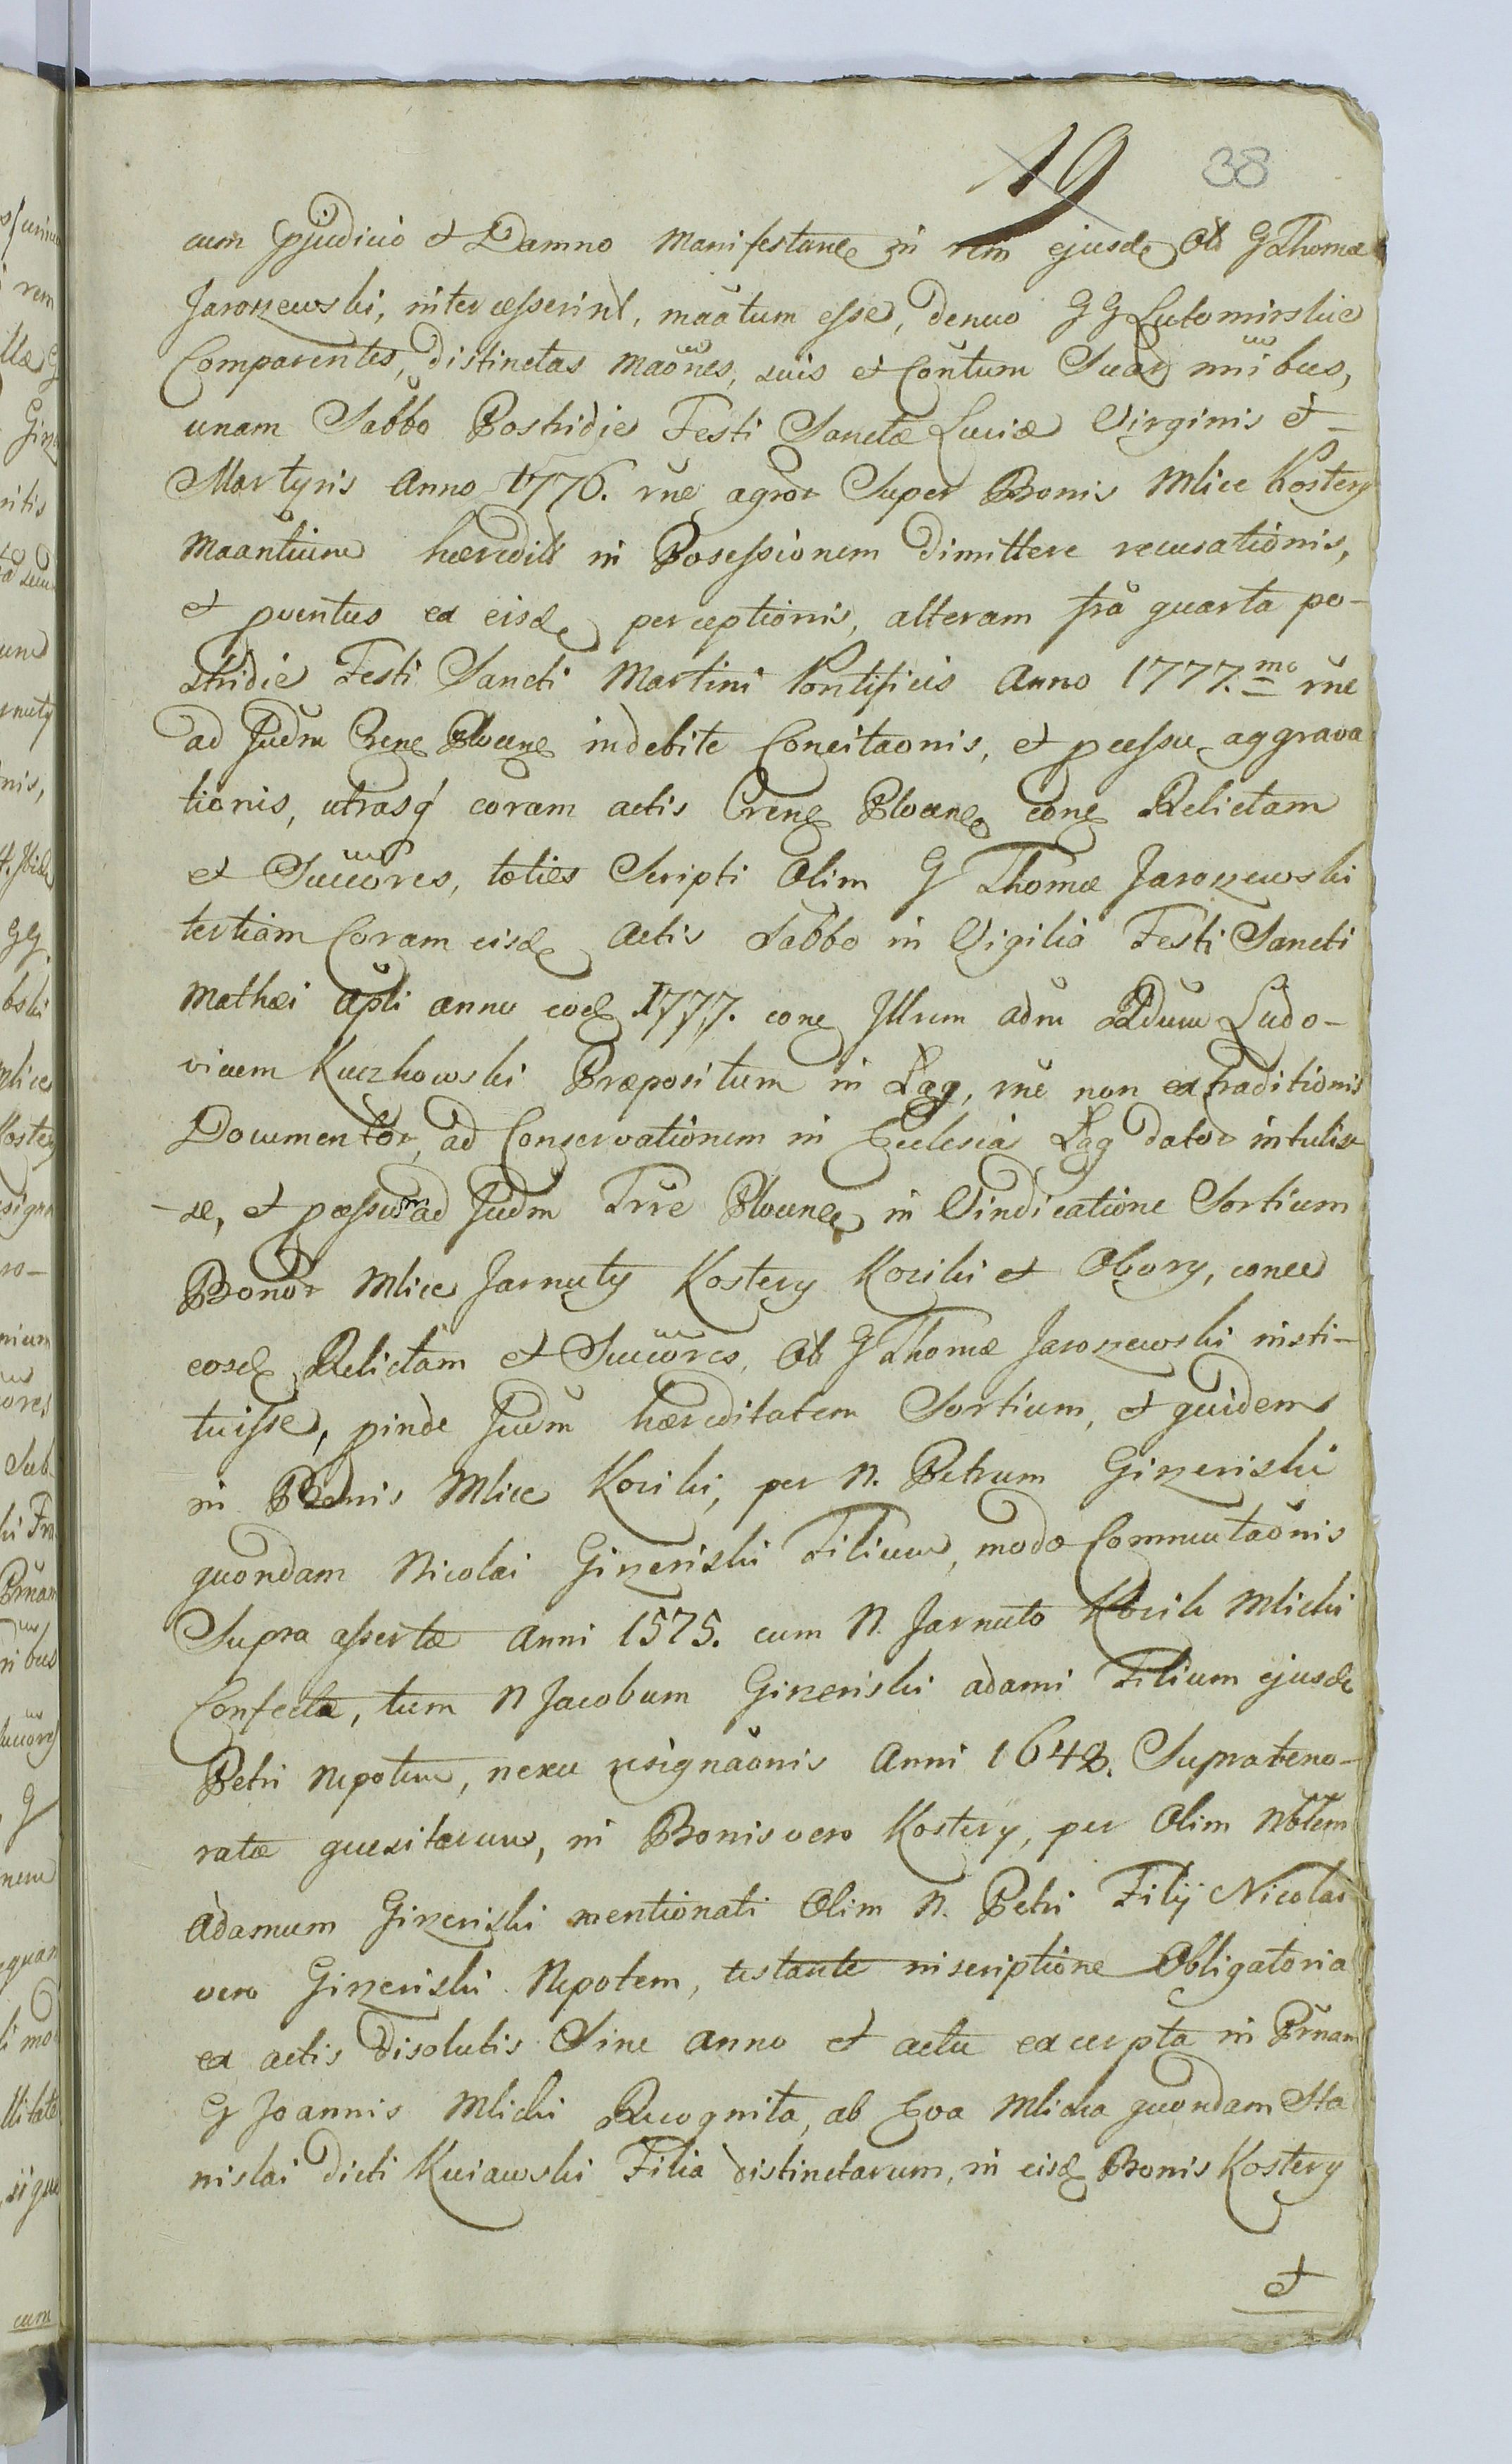 19 38
cum pjudicio et Damno manifestane in rem ejusd Olì G Thomæ
Jaroszewski, intercesserint, maãtum esse, denuo GG Lutomirskie
Comparentes, distinctas maões, suis et Coñtum Suar nñibus,
unam Sabbo Postridie Festi Sanctæ Luciæ Virginis et
Martyris Anno 1776. rñe agror Super Bonis Mlice Kostery
Maantium hæredit in Posessionem dimittere recusationis,
et pventus ex eisd perceptionis, alteram fra quarta po-
stridie Festi Sancti Martini Pontificis Anno 1777.mo rñe
ad Judm Crene Plocene indebite Concitaonis, et pcessu aggrava
tionis, utrasq coram actis Crene Plocene cone Relictam
et Succores, toties Scripti Olim G Thomæ Jaroszewski
tertiam Coram eisd Actis Sabbo in Vigilia Festi Sancti
Mathæi Apli anno eod 1777. cone Jllrem adm Rdum Ludo-
vicum Kuczkowski Præpositum in Łąg, rñe non extraditionis
Documentor, ad Conservationem in Ecclesia Łąg dator intulis-
-se, et pcessus ad Judm Trre Plocene in Vindicatione Sortium
Bonor Mlice Jarnuty Kostery Kosiki et Obory, cone
eosd Relictam et Succores, Ol G Thomæ Jaroszewski insti-
tuisse, pinde Judm hæreditatem Sortium, et quidem
in Bonis Mlice Kosiki, per N. Petrum Giżyński
quondam Nicolai Giżyński Filium, modo Commutaonis
Supra assertæ Anni 1575. cum N. Jarnuto Kosik Mlicki
Confectæ, tum N Jacobum Giżyński Adami Filium ejusd
Petri Nepotem, nexu resignaonis Anni 1648. Suprateno-
ratæ quesitarum, in Bonis vero Kostery, per Olim Nblem
Adamum Giżyński mentionati Olim N. Petri Filij Nicolai
vero Giżyński Nepotem, testante inscriptione Obligatoria
ex actis disolutis Sine anno et actu excerpta in Prñam
G Joannis Mlicki Recognita, ab Eva Mlicka quondam Sta
nislai dicti Kuiawski Filia distinctarum, in eisd Bonis Kostery
et